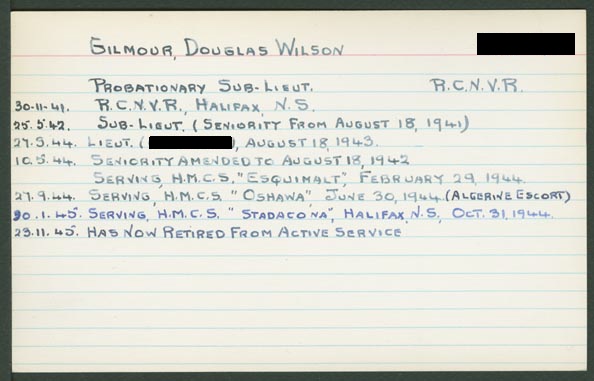 Gilmour, Douglas Wilson
Probationary Sub-Lieut. R.C.N.V.R.
30-11-41. R.C.N.V.R., Halifax, N.S.
25.5.42. Sub-Lieut. (Seniority from August 18, 1941)
27.5.44. Lieut. ( ), August 18, 1943.
10.5.44. Seniority amended to August 18, 1942
Serving, H.M.C.S. "Esquimalt", February 29, 1944.
27.9.44. Serving, H.M.C.S. "Oshawa", June 30, 1944 (Algerine Escort)
30.1.45. Serving, H.M.C.S. "Stadacona", Halifax, N.S., Oct. 31, 1944.
23.11.45. Has now retired from active service